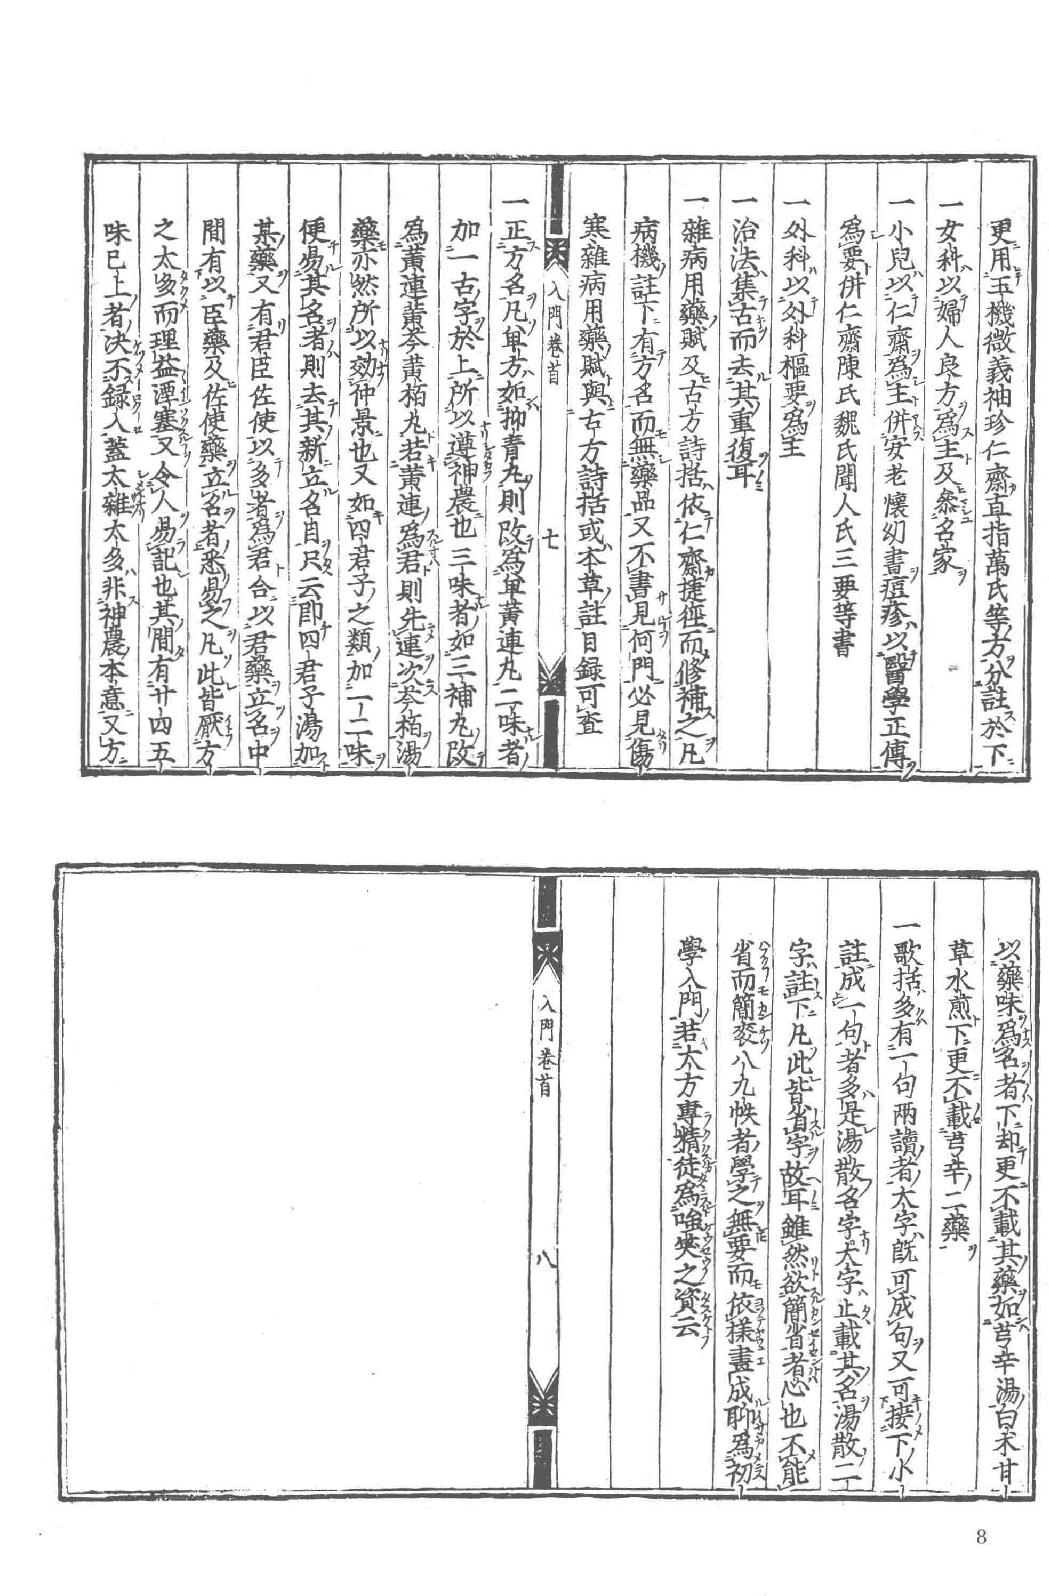 更用玉機微義袖珍仁齋直指萬氏等方分註於下
一女科以婦人良方爲主及叅名家
一小兒以仁齋爲主併安老懷幼書痘疹以醫學正傳
爲要併仁齋陳氏魏氏聞人氏三要等書
一外科以外科樞要爲主
一治法集古而去其重復耳
一雜病用藥賦及古方詩括依仁齋捷徑而修補之凡
病機註下有方名而無藥品又不書見何門必見傷
寒雜病用藥賦與古方詩括或本草註目録可査
入門卷首
七
一正方名凡單方如抑青丸則改爲單黄連丸二味者
加一古字於上所以遵神農也三味者如三補丸改
爲黄連黄芩黄栢丸若黄連爲君則先連次芩栢湯
藥亦然所以効仲景也又如四君子之類加一二味
便易其名者則去其新立名目只云即四君子湯加
某藥又有君臣佐使以多者爲君合以君藥立名中
間有以臣藥及佐使藥立名者悉易之凡此皆厭方
之太多而理益潭塞又令人易記也其間有廿四五
味已上者决不録入蓋太雜太多非神農本意又方
以藥味爲名者下却更不載其藥如芎辛湯白术甘
草水煎下更不載芎辛二藥
一歌括多有一句兩讀者大字既可成句又可接下小
註成一句者多是湯散名字大字止載其名湯散二
字註下凡此皆省字故耳雖然欲簡省者心也不能
省而簡袠八九帙者學之無要而依樣畫成聊爲初
學入門若大方專精徒爲嗤笑之資云
入門卷首
八
8